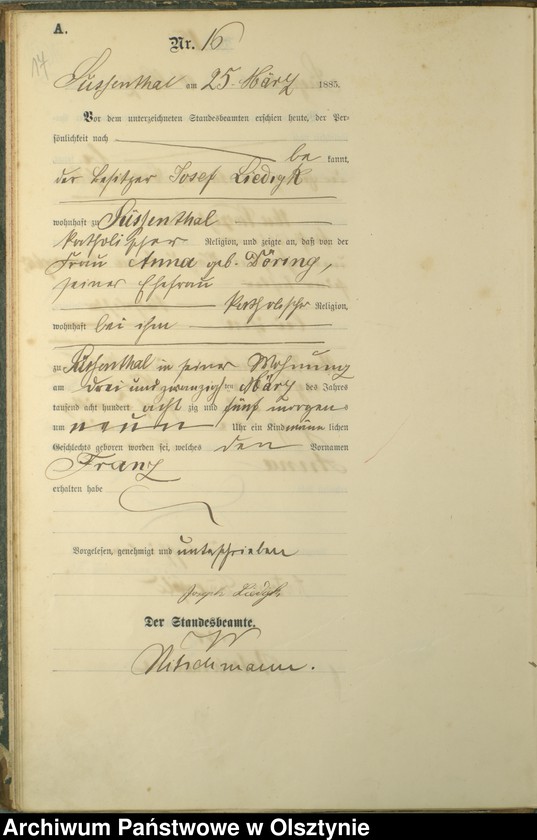 A.
17
Nr. 16
Süssenthal am 25. März 1885.
Vor dem unterzeichneten Standesbeamten erschien heute, der Per-
sönlichkeit nach
be kannt,
der Besitzer Josef Liedigk
wohnhaft zu Süssenthal
katholischer Religion, und zeigte an, daß von der
Frau Anna geb. Döring,
seiner Ehefrau
katholischer Religion,
wohnhaft bei ihm
zu Süssenthal in seiner Wohnung
am drei und zwanzigsten März des Jahres
tausend acht hundert acht zig und fünf morgens
um neun Uhr ein Kind männ lichen
Geschlechts geboren worden sei, welches den Vornamen
Franz
erhalten habe
Vorgelesen, genehmigt und unterschrieben
Joseph Liedigk
Der Standesbeamte.
Nitschmann.
Archiwum Państwowe w Olsztynie